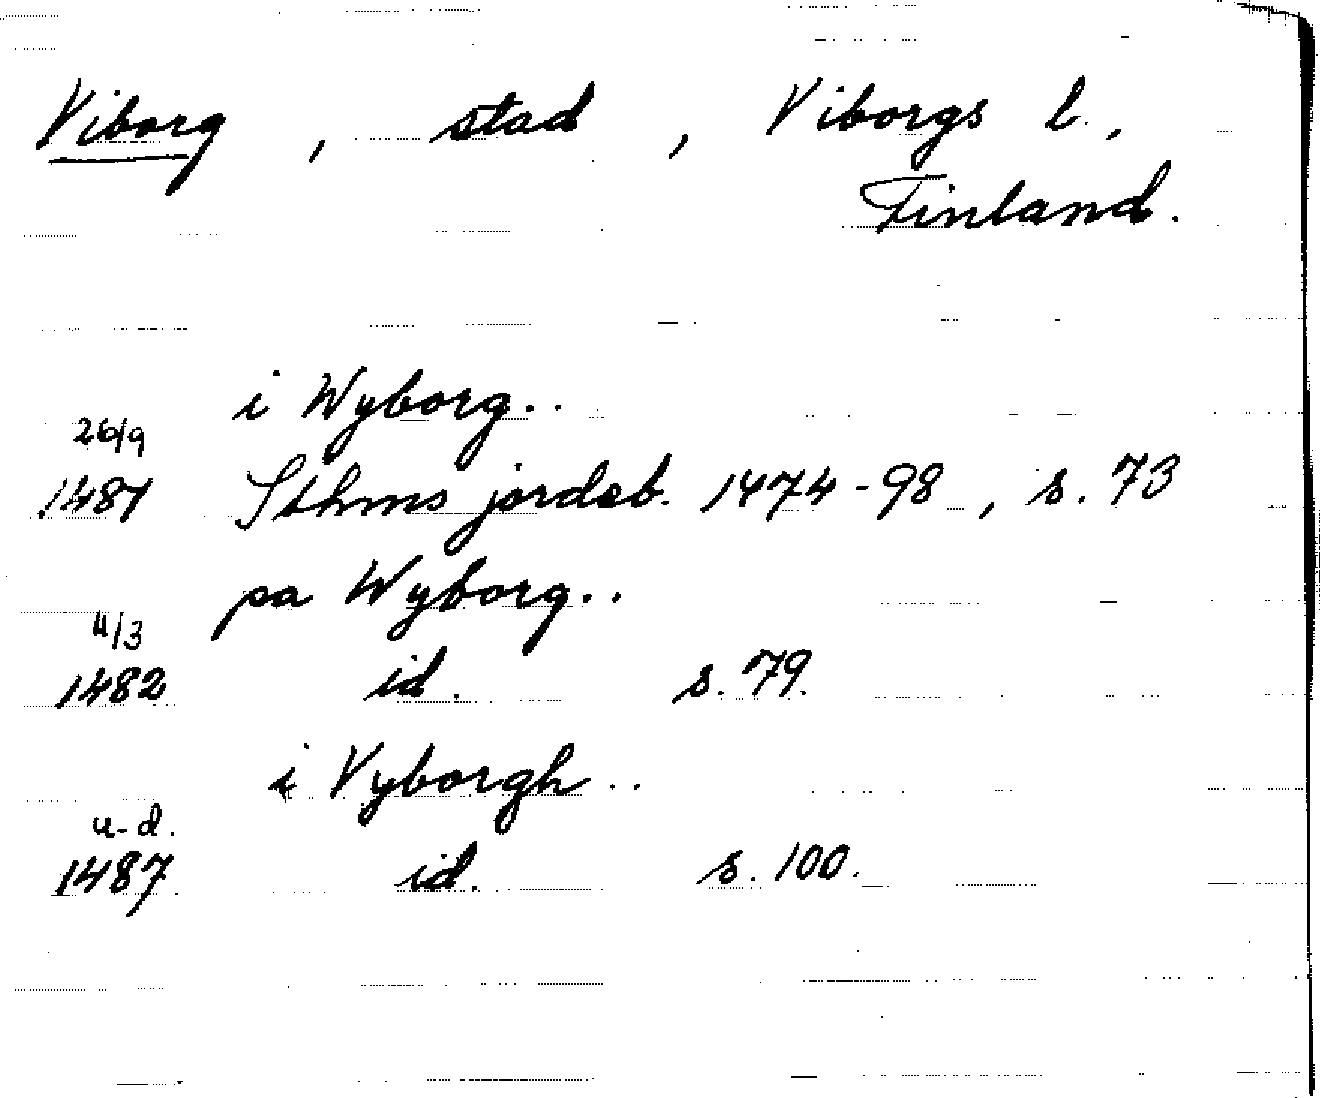 Viborg, stad, Viborgs l.,
Finland.
i Wyborg..
26/9
1481 Sthms jordeb. 1474-98, s. 73
pa Wyborg..
4/3
1482 id. s. 79.
i Vyborgh..
u-d.
1487 id. s. 100.